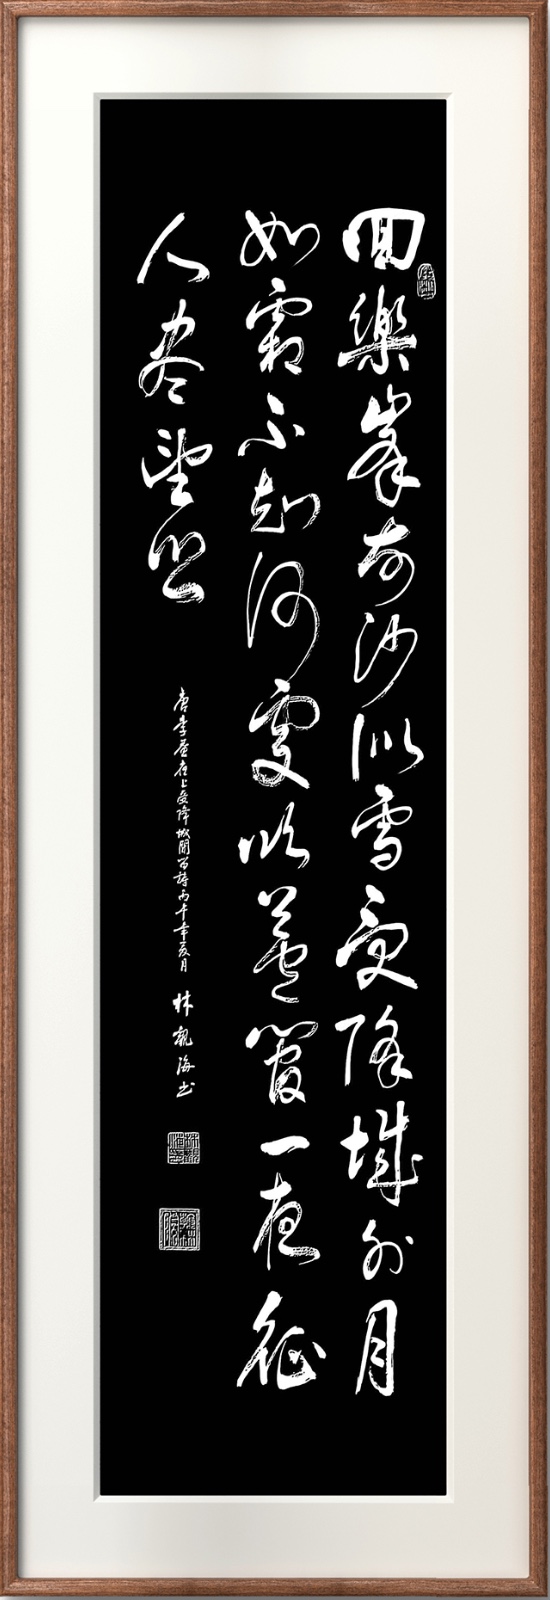 回樂峯前沙似雪受降城外月
如霜不知何處吹蘆管一夜征
人盡望鄉
唐李益夜上受降城聞笛詩丙午年亥月 林觀海書